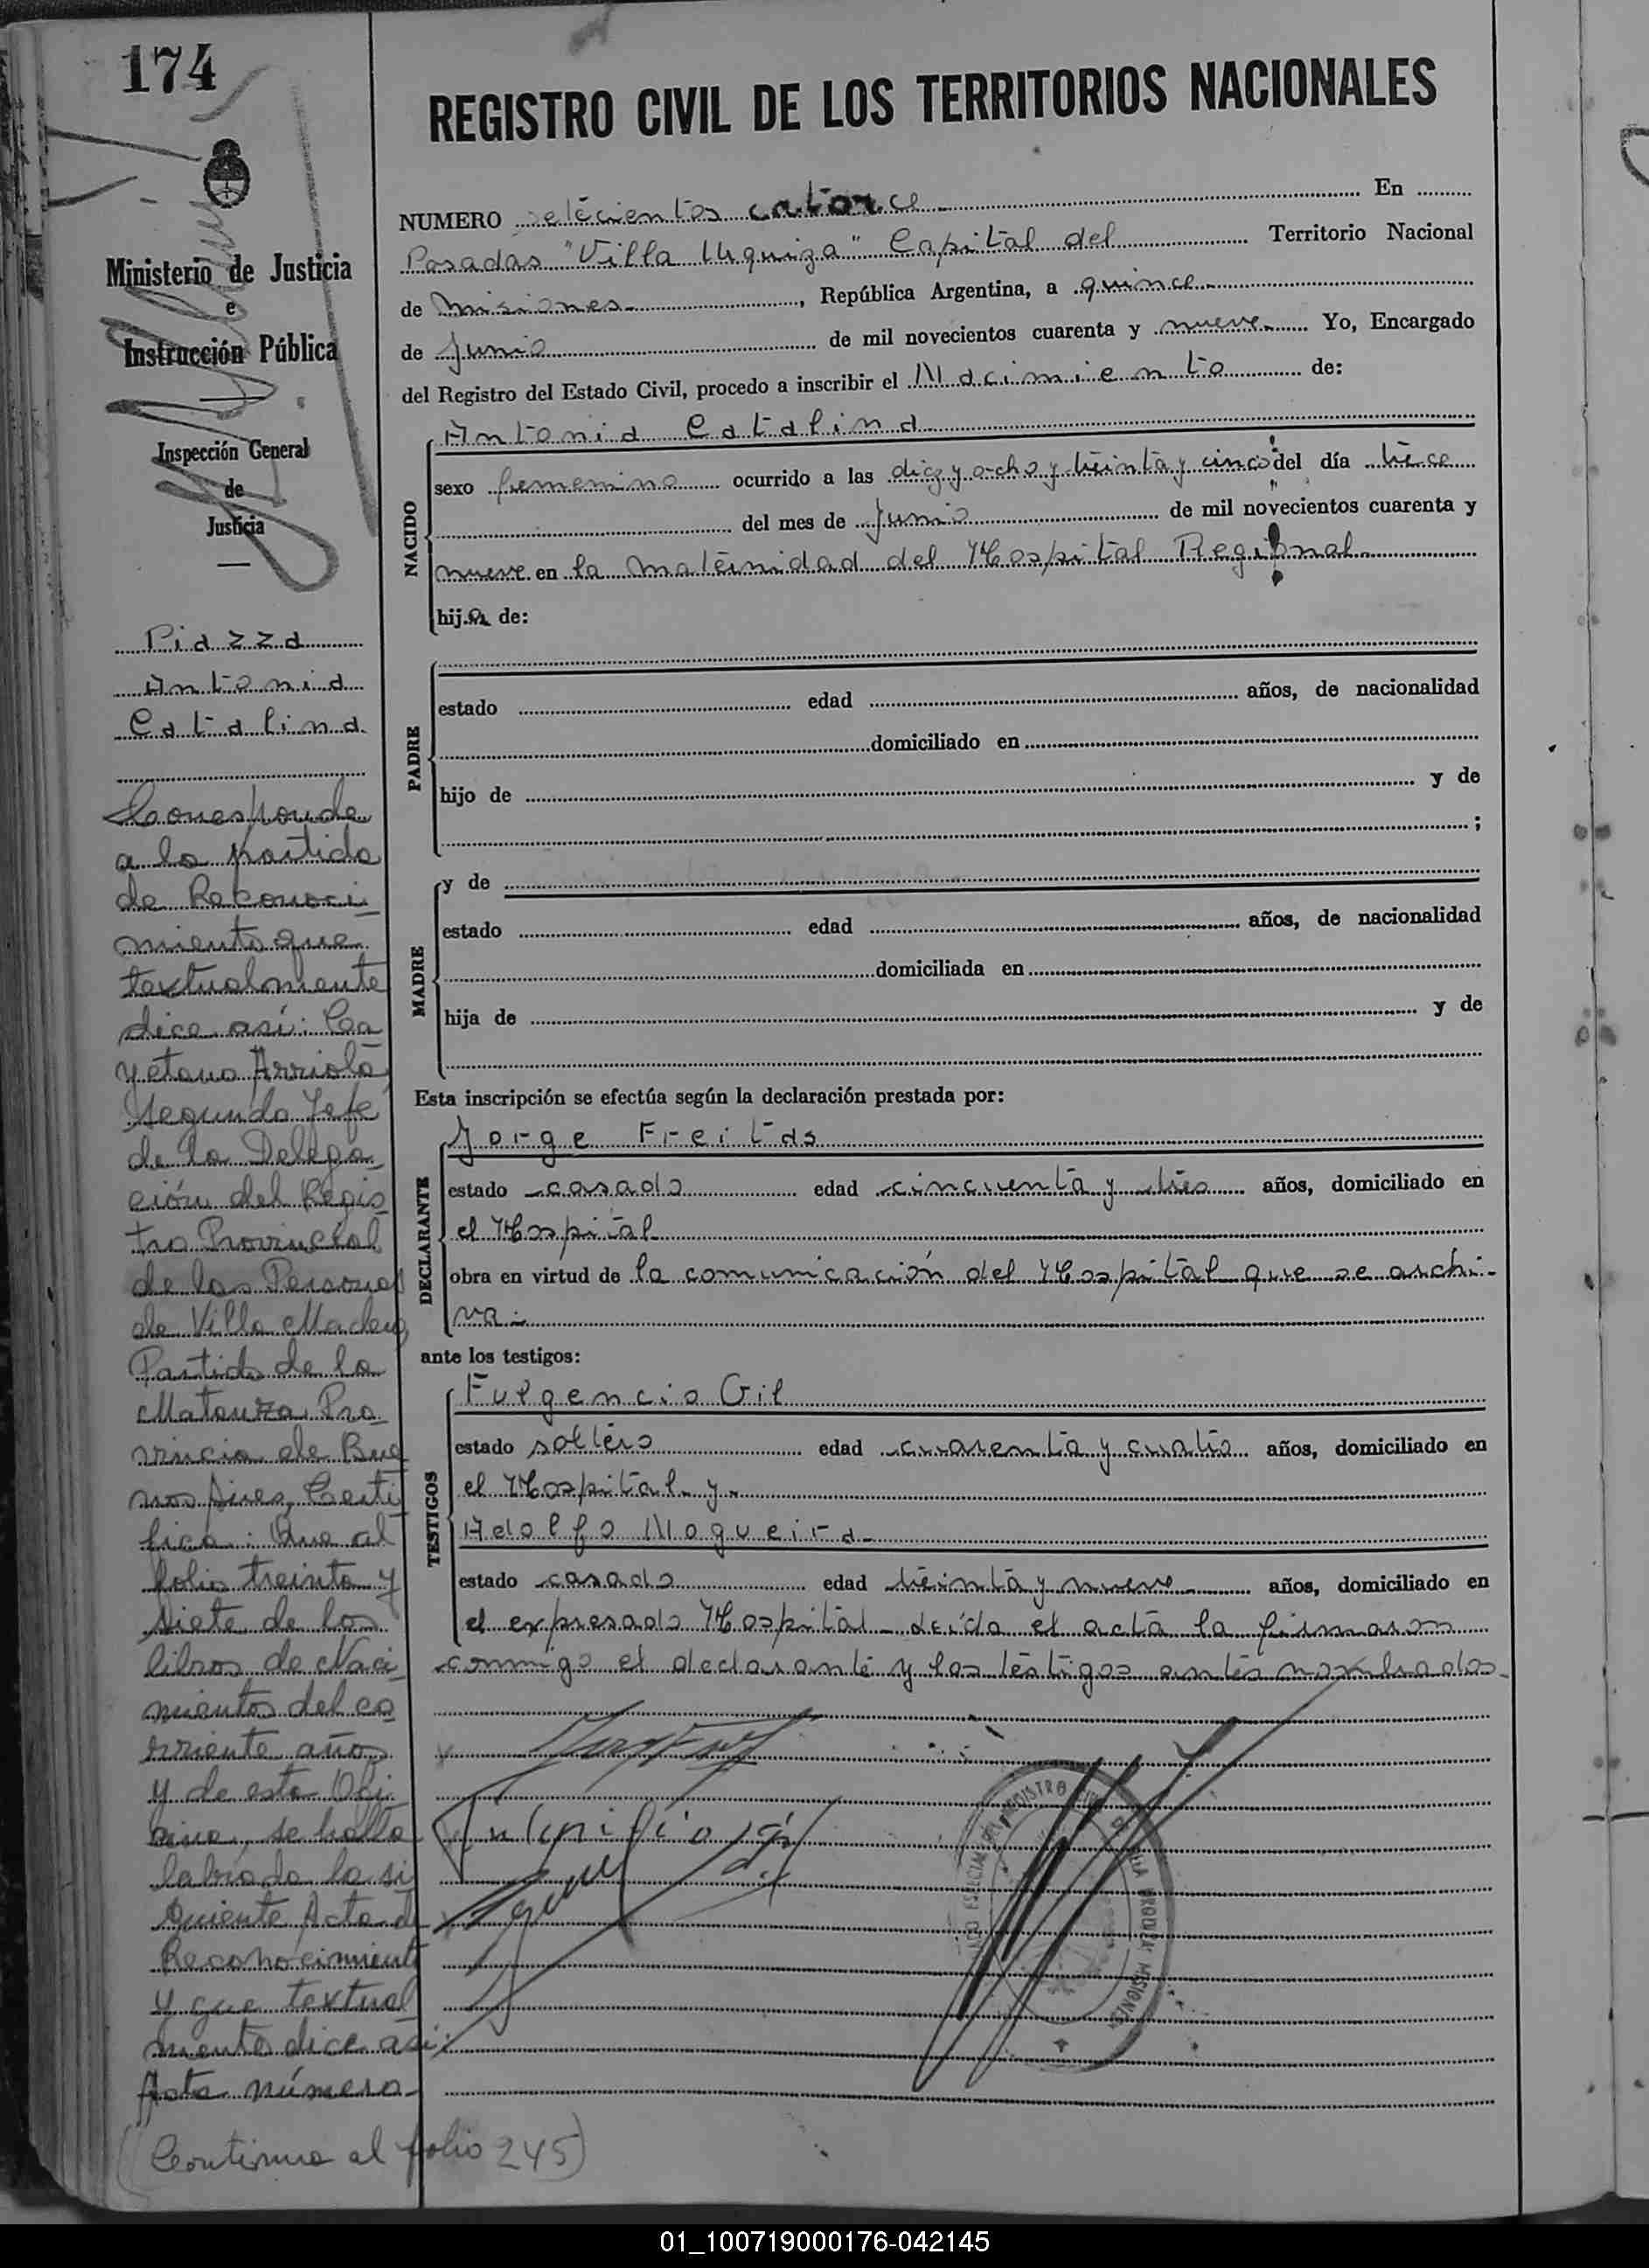 174
REGISTRO CIVIL DE LOS TERRITORIOS NACIONALES
Ministerio de Justicia
e
Instrucción Pública
Inspección General
de
Justicia
NUMERO setecientos catorce En
Posadas "Villa Urquiza" Capital del Territorio Nacional
de Misiones, República Argentina, a quince
de Junio de mil novecientos cuarenta y nueve Yo, Encargado
del Registro del Estado Civil, procedo a inscribir el Nacimiento de:
NACIDO
Antonia Catalina
sexo femenino ocurrido a las diez y ocho y treinta y cinco del día trece
del mes de Junio de mil novecientos cuarenta y
nueve en la maternidad del Hospital Regional
hija de:
PADRE
estado edad años, de nacionalidad
domiciliado en
hijo de y de
;
MADRE
y de
estado edad años, de nacionalidad
domiciliada en
hija de y de
Esta inscripción se efectúa según la declaración prestada por:
DECLARANTE
Jorge Freitas
estado casado edad cincuenta y tres años, domiciliado en
el Hospital
obra en virtud de la comunicación del Hospital que se archi-
va.
ante los testigos:
TESTIGOS
Fulgencio Gil
estado soltero edad cuarenta y cuatro años, domiciliado en
el Hospital y
Adolfo Nogueira
estado casado edad treinta y nueve años, domiciliado en
el expresado Hospital leída el acta la firmaron
conmigo el declarante y los testigos antes nombrados
Piazza
Antonia
Catalina
Corresponde
a la partida
de Reconoci
miento que
textualmente
dice así: Ca
yetano Arriola
Segundo Jefe
de la Delega
ción del Regis
tro Provincial
de las Personas
de Villa Madero,
Partido de la
Matanza Pro
vincia de Bue
nos Aires, Certi
fico: Que al
folio treinta y
siete de los
libros de Naci
mientos del co
rriente años
y de esta Ofi
cina, se halla
labrada la si
guiente Acta de
Reconocimiento
y que textual
mente dice así:
Acta número
(Continua al folio 245)
01_100719000176-042145